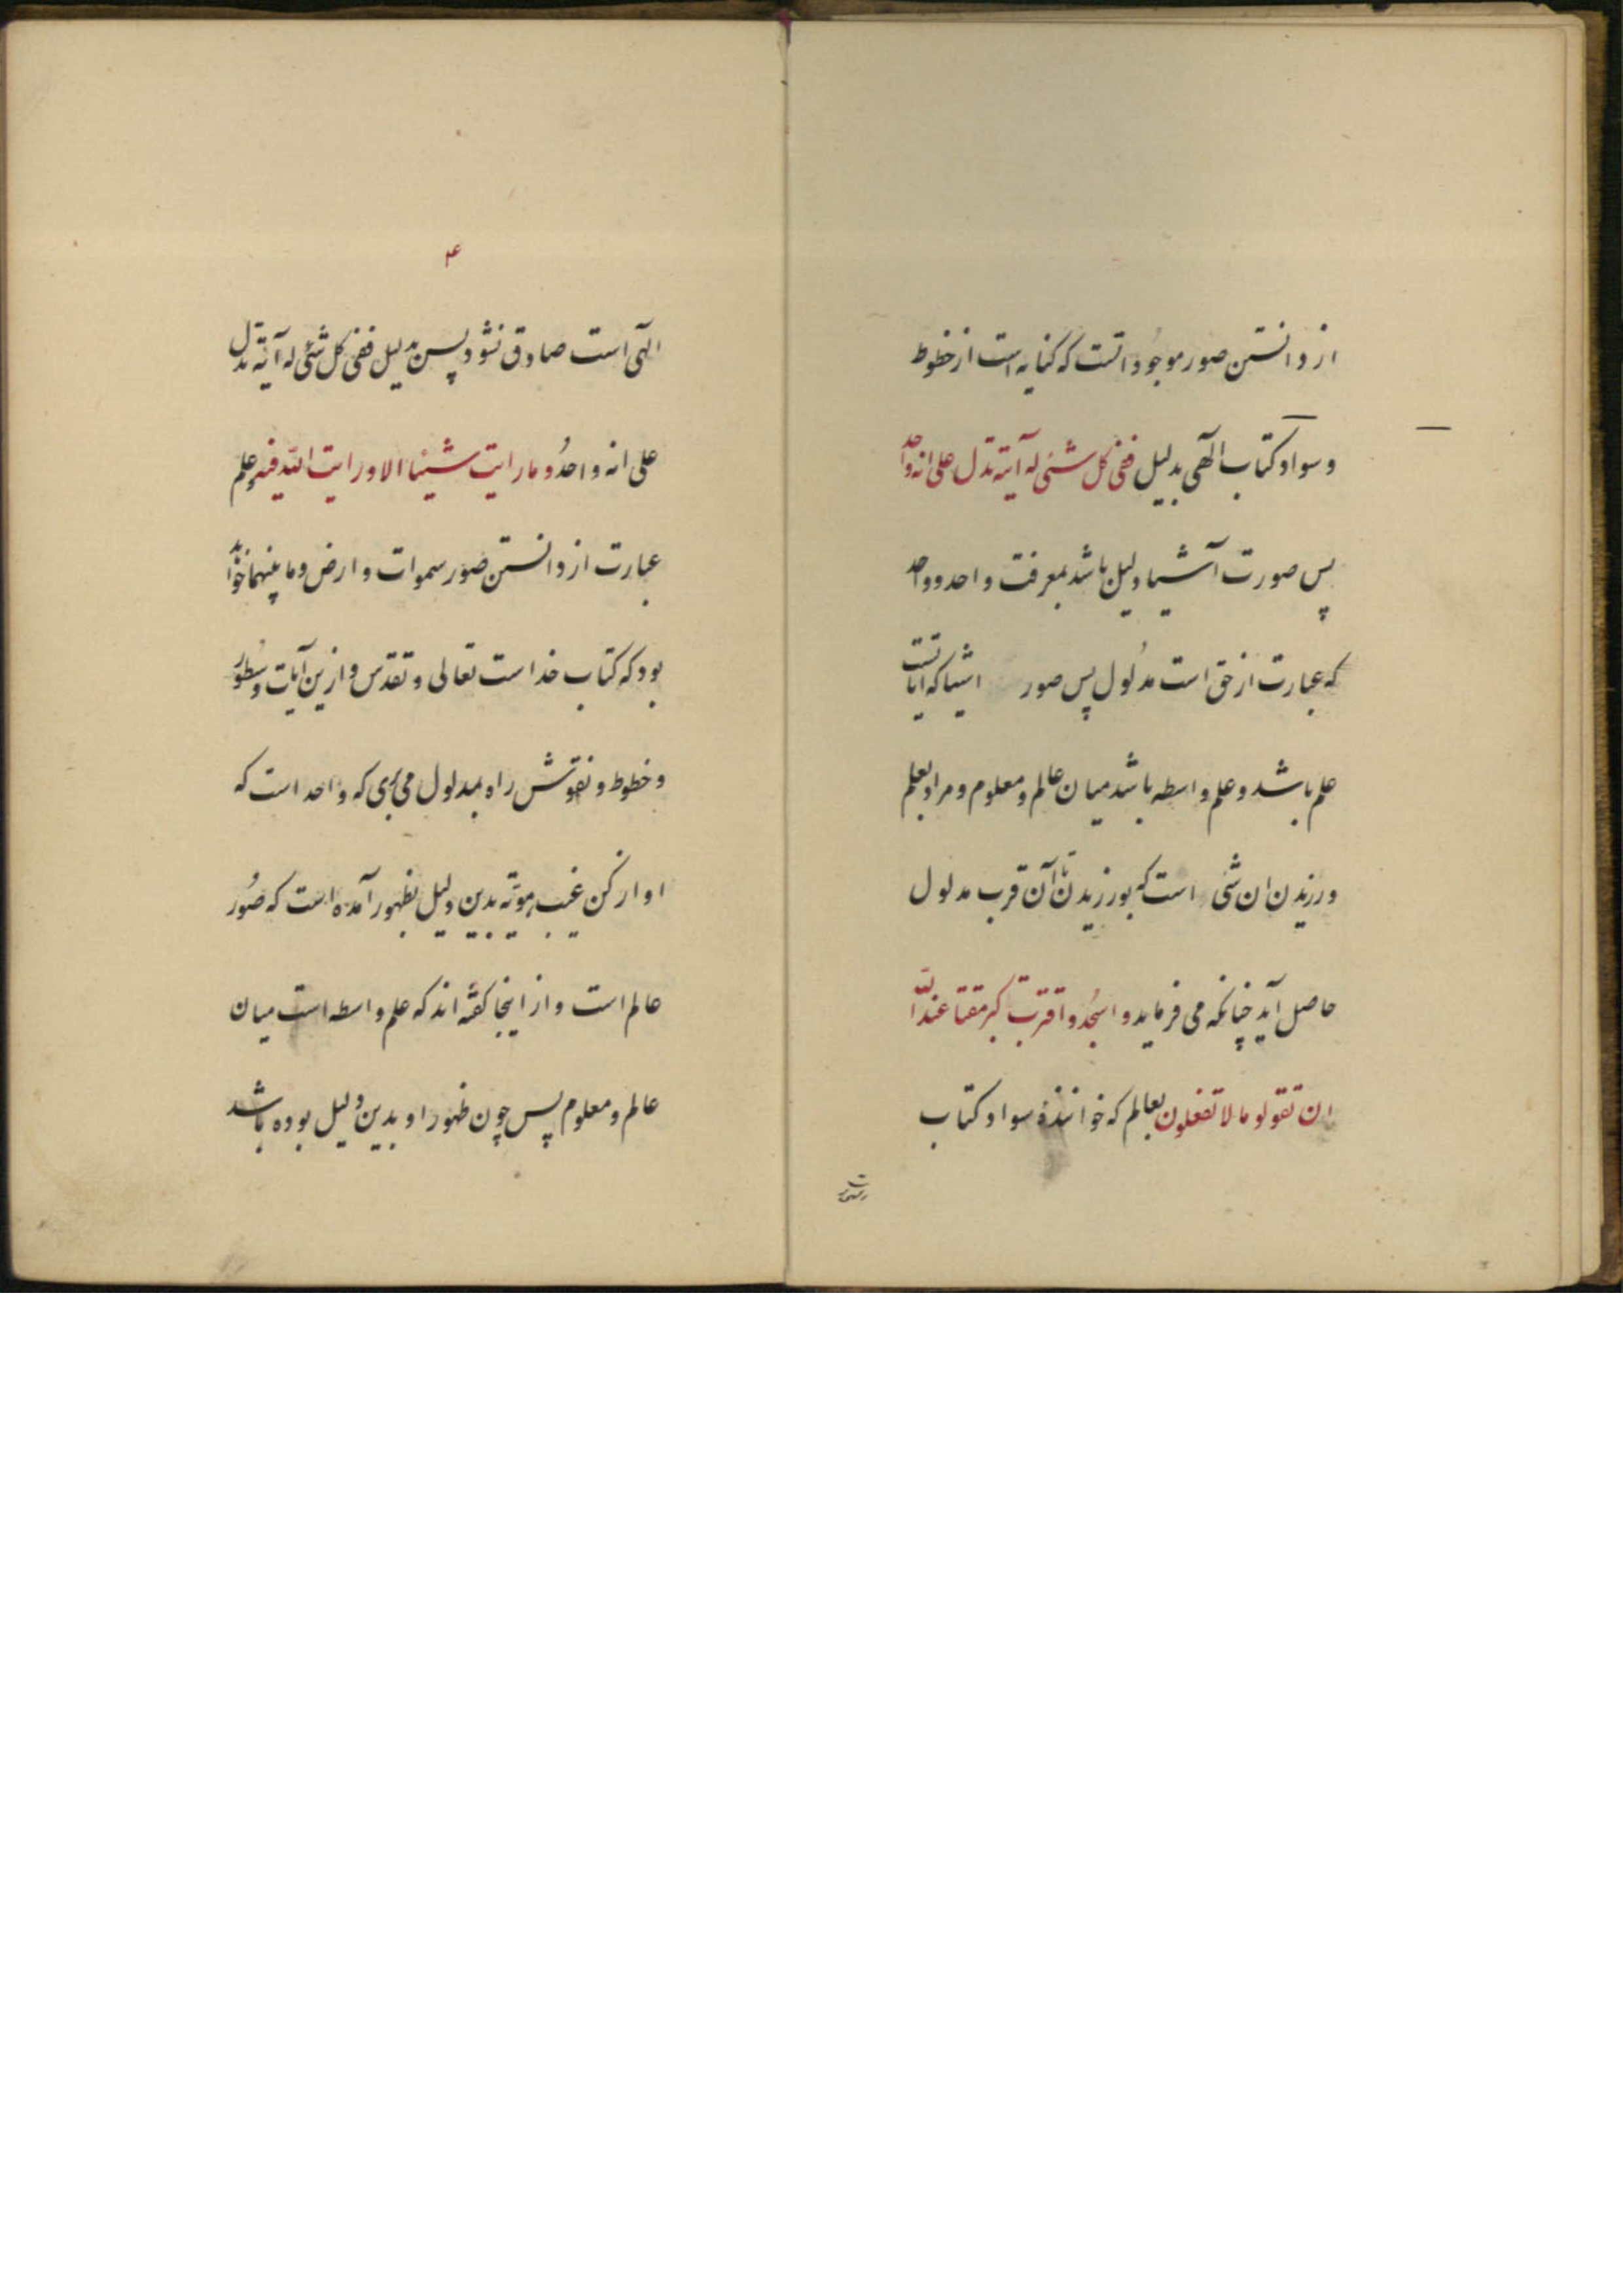 از دانستن صور موجودات است که کنایه است از خطوط
و سواد کتاب الهی بدلیل ففی کل شئی له آیته تدل علی انه واحد
پس صورت آشیا دلیل باشد بمعرفت واحد و واحد
که عبارت از حق است مدلول پس صور اشیا که ایاتست
علم باشد و علم واسطه باشد میان عالم و معلوم و مراد بعلم
ورزیدن ان شئی است که بورزیدن آن قرب مدلول
حاصل آید چنانکه می فرماید و اسجُد و اقترب کبر مقتا عند الله
ان تقولو ما لا تفعلون بعالم که خوانندۀ سواد کتاب
۴
الهی است صادق نشود پس بدلیل ففی کل شئی له آیته تدل
علی انه واحدُ و ما رایت شیئا الا و رایت اللّه فیه و علم
عبارت از دانستن صور سموات و ارض و ما بینهما خواند
بود که کتاب خداست تعالی و تقدس و ازین آیات و سطور
و خطوط و نقوش راه بمدلول می بری که واحد است که
او از کن غیب هویّته بدین دلیل بظهور آمده است که صُور
عالم است و از اینجا کفته اند که علم واسطه است میان
عالم و معلوم پس چون ظهور او بدین دلیل بوده باشد